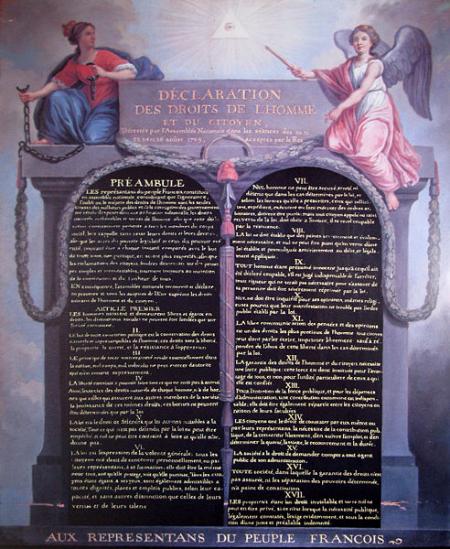 DÉCLARATION
DES DROITS DE L'HOMME
ET DU CITOYEN,
Décrétés par l'Assemblée Nationale dans les séances des
août 1789, acceptés par le Roi
PRÉAMBULE
LES représentans du peuple François, constitués
en assemblée nationale, considérant que l'ignorance,
l'oubli ou le mépris des droits de l'homme sont les seules
causes des malheurs publics et de la corruption des gouvernemens
ont résolu d'exposer dans une déclaration solemnelle, les droits
naturels, inaliénables et sacrés de l'homme: afin que cette décla-
ration, constamment présente à tous les membres du corps
social, leur rappelle sans cesse leurs droits et leurs devoirs;
afin que les actes du pouvoir législatif et ceux du pouvoir exé-
cutif, pouvant être à chaque instant comparés avec le but
de toute institution politique, en soient plus respectés; afin que
les réclamations des citoyens, fondées désormais sur des prin-
cipes simples et incontestables, tournent toujours au maintien
de la constitution et du bonheur de tous.
EN conséquence, l'assemblée nationale reconnoit et déclare
en présence et sous les auspices de l'Être suprême les droits
suivans de l'homme et du citoyen.
ARTICLE PREMIER.
LES hommes naissent et demeurent libres et égaux en
droits, les distinctions sociales ne peuvent être fondées que sur
l'utilité commune.
II.
LE but de toute association politique est la conservation des droits
naturels et imprescriptibles de l'homme; ces droits sont la liberté,
la propriété, la sureté, et la résistance à l'oppression.
III.
LE principe de toute souveraineté réside essentiellement dans
la nation, nul corps, nul individu ne peut exercer d'autorité
qui n'en émane expressément.
LA liberté consiste à pouvoir faire tout ce qui ne nuit pas à autrui
Ainsi, l'exercice des droits naturels de chaque homme, n'a de bor-
nes que celles qui assurent aux autres membres de la société
la jouissance de ces mêmes droits; ces bornes ne peuvent
être déterminées que par la loi
LA loi n'a le droit de défendre que les actions nuisibles à la
société. Tout ce qui n'est pas défendu par la loi ne peut être
empêché, et nul ne peut être contraint à faire ce qu'elle n'or-
donne pas.
VI.
LA loi est l'expression de la volonté générale; tous les
citoyens ont droit de concourir personnellement, ou par
leurs représentans, à sa formation; elle doit être la même
pour tous, soit qu'elle protege, soit qu'elle punisse. Tous les citoy-
yens étant égaux à ses yeux, sont également admissibles à
toutes dignités, places et emplois publics, selon leur ca-
pacité, et sans autres distinction que celles de leurs
vertus et de leurs talens.
VII.
NUL homme ne peut être accusé, arrêté ni
détenu que dans les cas déterminés par la loi, et
selon les formes qu'elle a prescrites, ceux qui sollici-
tent, expédient, exécutent ou font exécuter des ordres ar-
bitraires, doivent être punis; mais tout citoyen appelé ou saisi
en vertu de la loi, doit obéir à l'instant, il se rend coupable
par la résistance.
VIII.
LA loi ne doit établir que des peines strictement et évidem-
ment nécessaires, et nul ne peut être puni qu'en vertu d'une
loi établie et promulguée antérieurement au délit, et légale-
ment appliquée.
IX.
TOUT homme étant présumé innocent jusqu'à ce qu'il ait
été déclaré coupable, s'il est jugé indispensable de l'arrêter,
toute rigueur qui ne seroit pas nécessaire pour s'assurer de
sa personne doit être sévèrement réprimée par la loi.
NUL ne doit être inquiété pour ses opinions, mêmes religi-
euses pourvu que leur manifestation ne trouble pas l'ordre
public établi par la loi.
XI.
LA libre communication des pensées et des opinions
est un des droits les plus précieux de l'homme: tout citoyen
peut donc parler, écrire, imprimer librement: sauf à ré-
pondre de l'abus de cette liberté dans les cas déterminés
par la loi.
XII.
LA garantie des droits de l'homme et du citoyen nécessite
une force publique; cette force est donc instituée pour l'avan-
tage de tous, et non pour l'utilité particuliere de ceux à qui
elle est confiée.
XIII.
POUR l'entretien de la force publique, et pour les dépenses
d'administration, une contribution commune est indispen-
sable; elle doit être également répartie entre les citoyens en
raison de leurs facultés.
XIV.
LES citoyens ont le droit de constater par eux mêmes ou
par leurs représentans, la nécessité de la contribution pub-
lique, de la consentir librement, d'en suivre l'emploi, et d'en
déterminer la quotité, l'assiette, le recouvrement et la durée.
XV.
LA société a le droit de demander compte à tout agent
public de son administration.
XVI.
TOUTE société, dans laquelle la garantie des droits n'est
pas assurée, ni les séparation des pouvoirs déterminée,
n'a point de constitution.
XVII.
LES propriétés étant un droit inviolable et sacré, nul ne
peut en être privé, si ce n'est lorsque la nécessité publique,
légalement constatée, l'exige évidemment, et sous la condi-
tion d'une juste et préalable indemnité.
AUX REPRESENTANS DU PEUPLE FRANCOIS